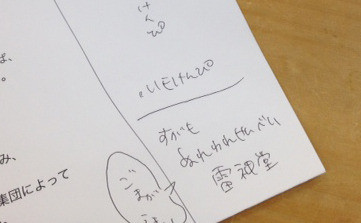 ば、
。
み、
集団によって
けんぴ
いもけんぴ
すがも
ぬれわれせんべい
雷神堂
ごま
まが